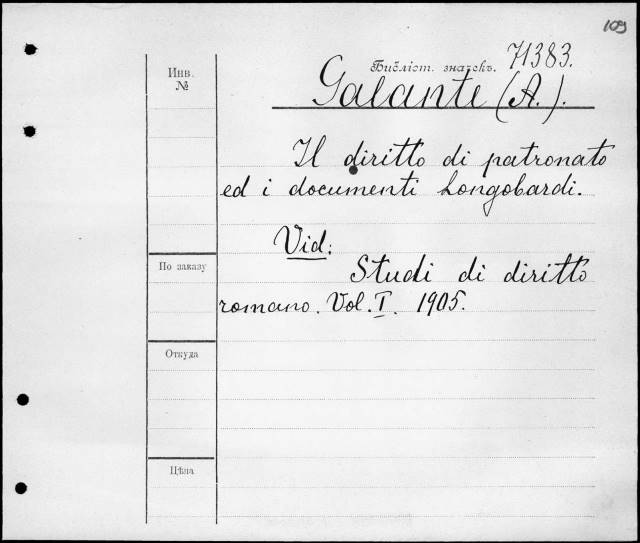 109
Инв.
№
Библіот. значекъ. 71383.
Galante (A.).
Il diritto di patronato
ed i documenti Longobardi.
Vid:
Studi di diritto
romano. Vol. I. 1905.
По заказу
Откуда
Цѣна